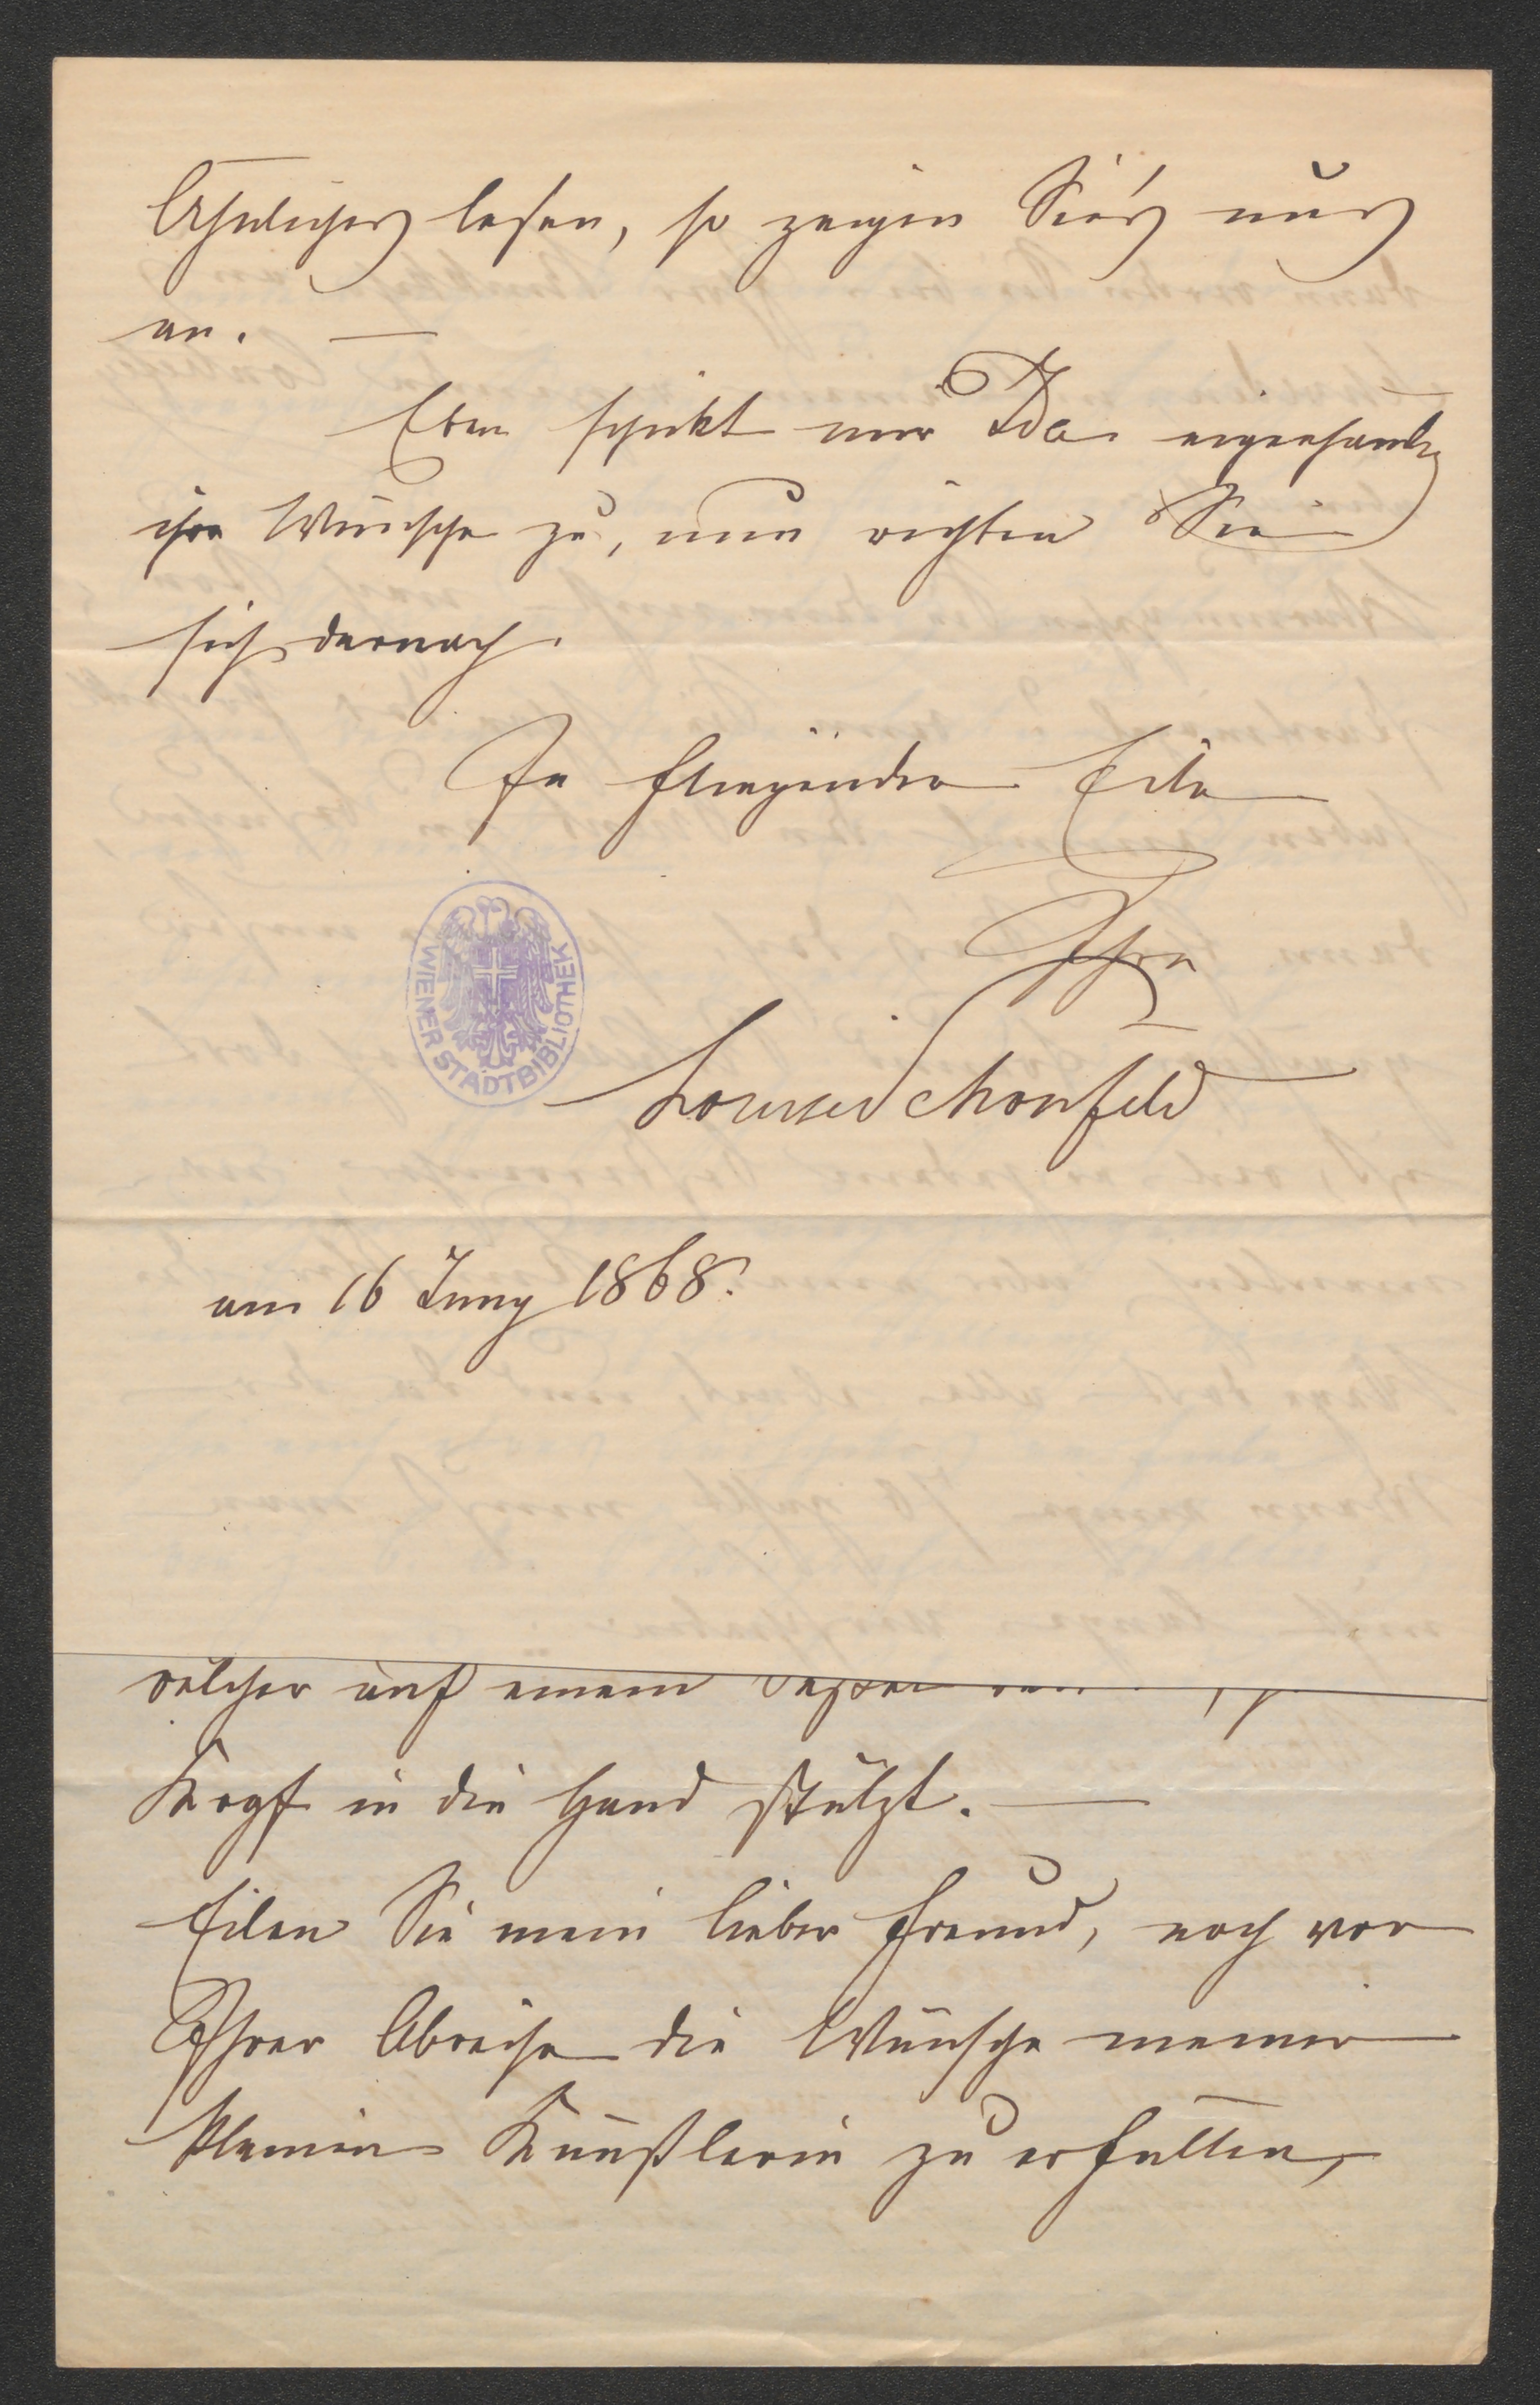 Ähnliches lesen, so zeigen Sie's uns
an. —
Eben schickt mir Ida eigenhändig
ihre Wünsche zu, nun richten Sie
sich darnach.
In fliegender Eile
Ihre
Louise Schönfeld
WIENER STADTBIBLIOTHEK
am 16 Juny 1868.
welcher auf einem
Kopf in die Hand stützt. —
Eilen Sie mein lieber Freund, noch vor
Ihrer Abreise die Wünsche meiner
kleinen Künstlerin zu erfüllen,